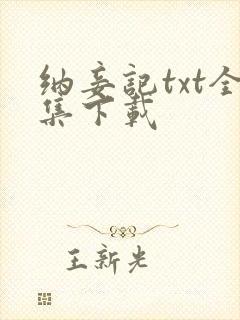 纳妾记txt全
集下载
王新光